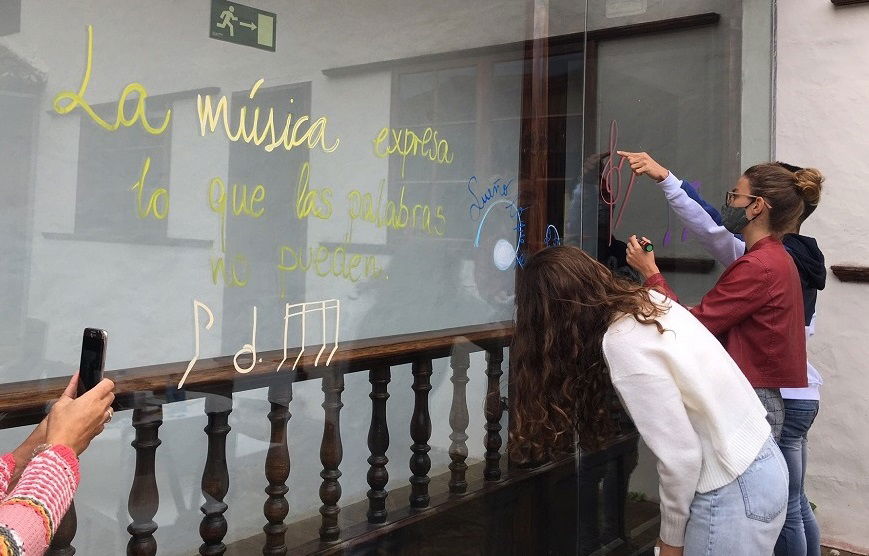 La música expresa
lo que las palabras
no pueden.
Sueño